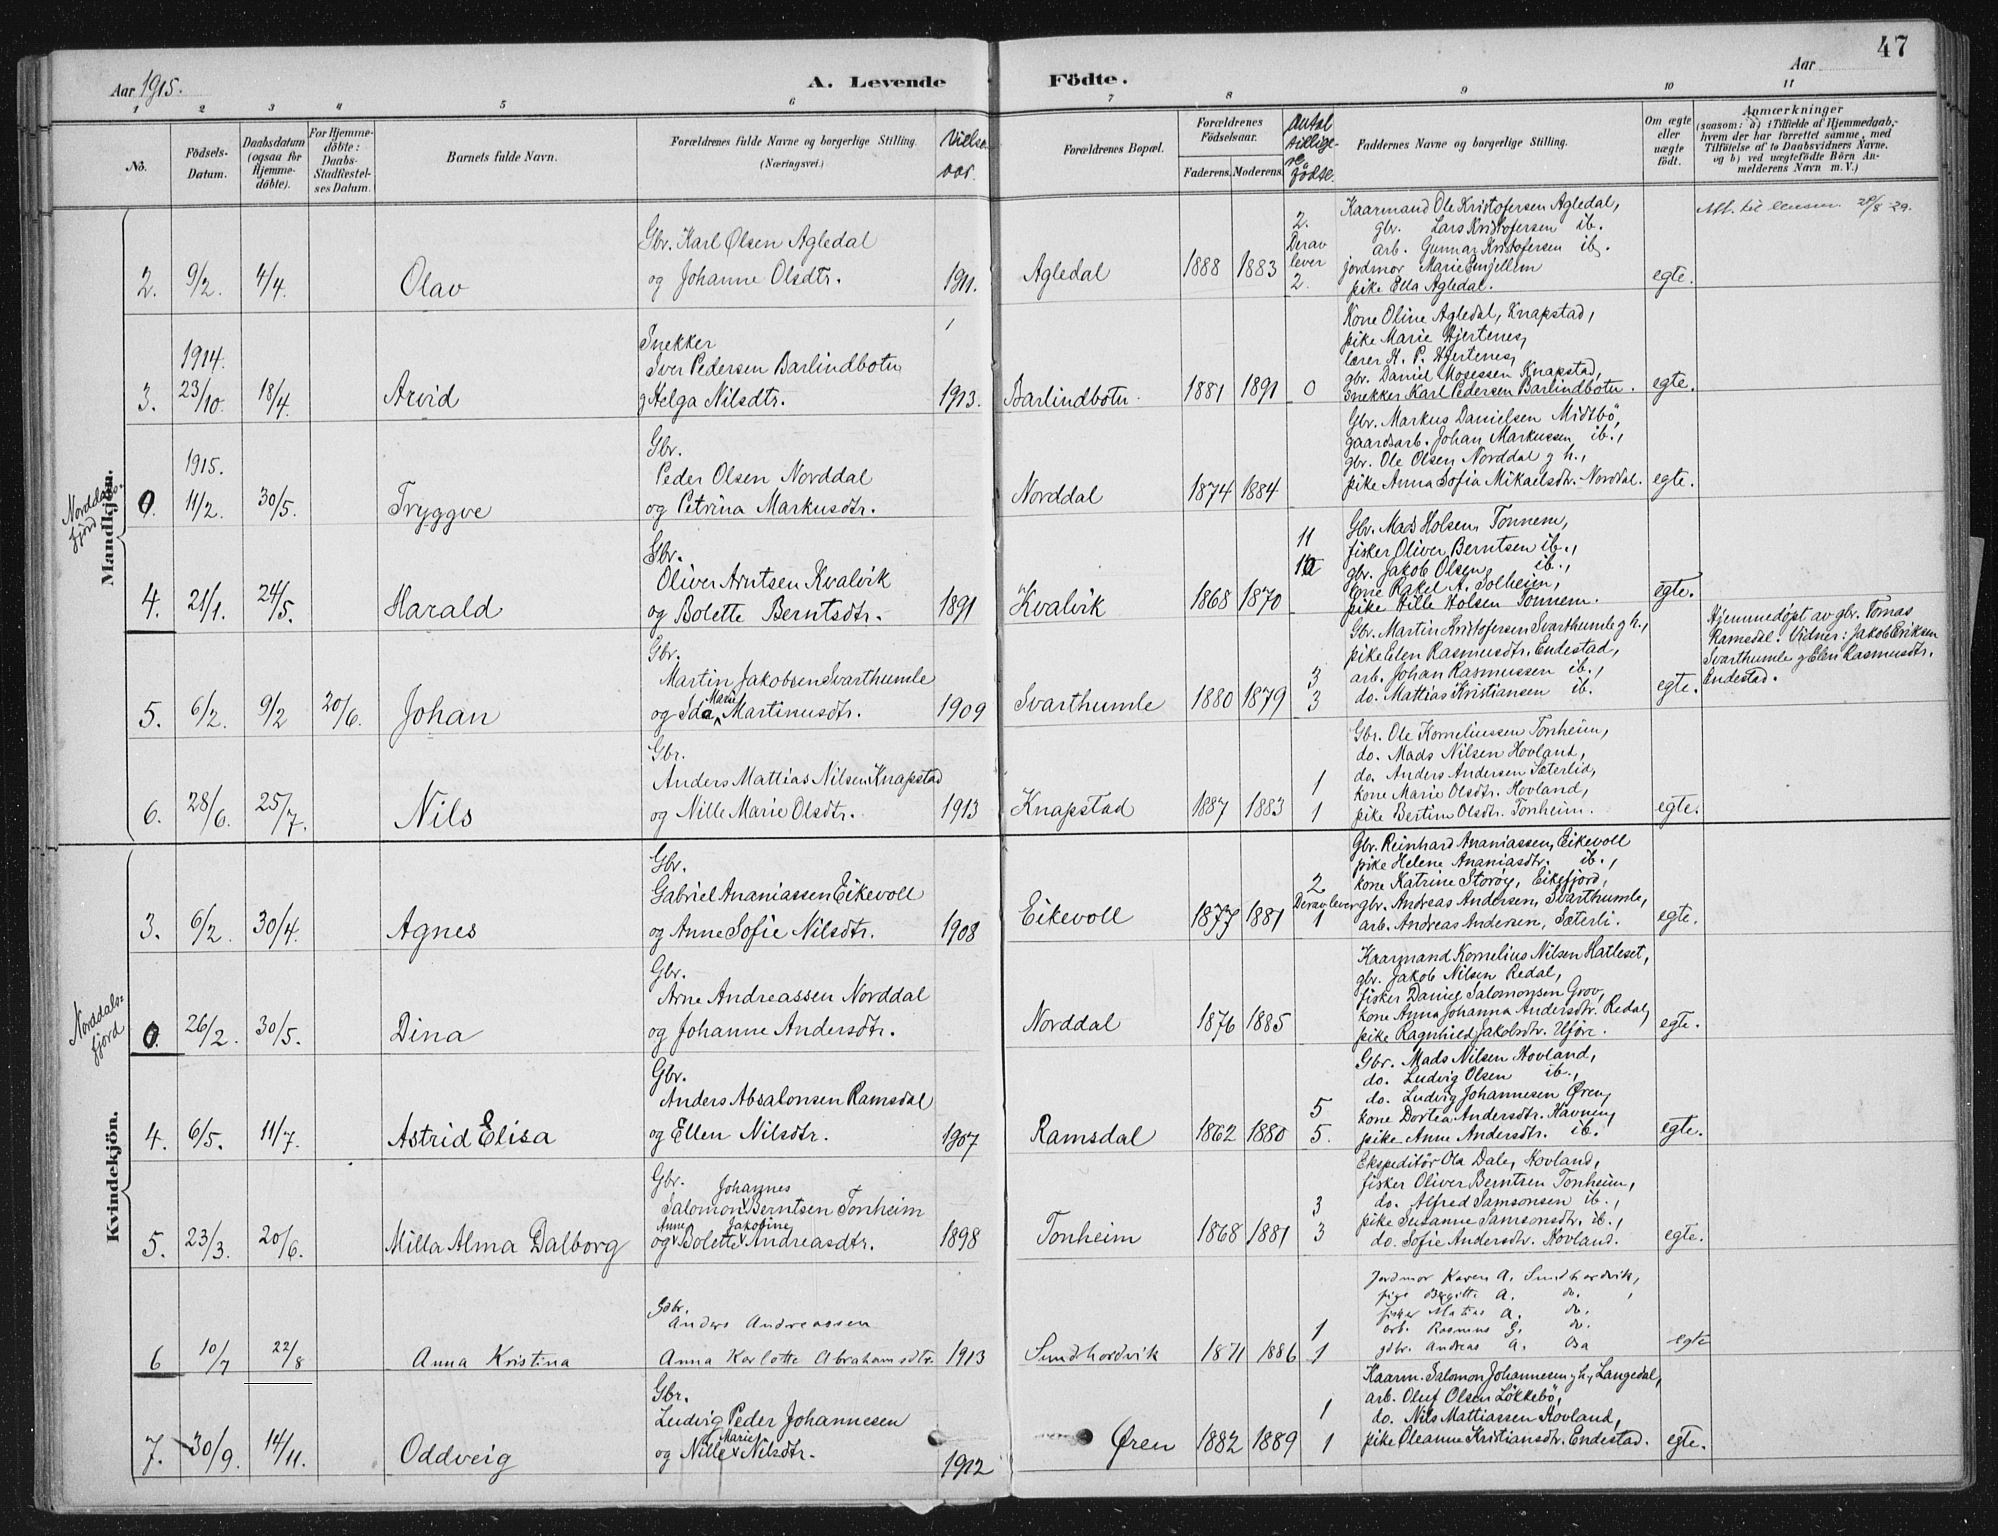 47
Aar 1915.
A. Levende Födte.
Aar
1 2 3 4 5 6 7 8 9 10 11
No.
Födsels-Datum.
Daabsdatum (ogsaa for Hjemme-döbte).
For Hjemme-döbte: Daabs-Stadfæstel-ses Datum.
Barnets fulde Navn.
Forældrenes fulde Navne og borgerlige Stilling.
(Næringsvei.)
Vielses aar.
Forældrenes Bopæl.
Forældrenes Födselsaar.
Faderens. Moderens.
Antal tidlige-re födse.
Faddernes Navne og borgerlige Stilling.
Om ægte eller uægte födt.
Anmærkninger
(saasom: a) i Tilfælde af Hjemmedaab,
hvem der har forrettet samme, med
Tilföielse af to Daabsvidners Navne,
og b) ved uægtefödte Börn An-
melderens Navn m. V.)
Mandkjön.
Norddals-fjord
2. 9/2. 4/4. Olav
Gbr. Karl Olsen Agledal
og Johanne Olsdtr. 1911.
Agledal 1888 1883
2. Derav lever 2.
Kaarmand Ole Kristofersen Agledal,
gbr. Lars Kristofersen ib.
arb. Gunnar Kristofersen ib.
jordmor Marie
pike Ella Agledal.
egte.
Att. til 20/8 29.
3. 1914. 23/10. 18/4. Arvid
Snekker
Iver Pedersen Barlindbotn
g Helga Nilsdtr. 1913.
Barlindbotn. 1881 1891 0
Kone Oline Agledal, Knapstad,
pike Marie Hjertenes,
lærer H. P. Hjertenes,
gbr. Daniel Mosessen Knapstad,
Snekker Karl Pedersen Barlindbotn.
egte.
0. 1915. 11/2. 30/5. Tryggve
Gbr.
Peder Olsen Norddal
og Petrina Markusdtr.
Norddal 1874 1884
Gbr. Markus Danielsen Midtbö,
gaardsarb. Johan Markussen ib.,
gbr. Ole Olsen Norddal g h.,
pike Anna Sofia Mikaelsdtr. Norddal.
egte.
4. 21/1. 24/5. Harald
Gbr.
Oliver Arntsen Kvalvik
og Bolette Berntsdtr. 1891
Kvalvik 1868 1870
11
10
Gbr. Mads Holsen Tonnem,
fisker Oliver Berntsen ib.,
gbr. Jakob Olsen ib.,
kone Rakel A. Solheim,
pike Hille Holsen Tonnem.
egte.
5. 6/2. 9/2 20/6. Johan
Gbr.
Martin Jakobsen Svarthumle
og Ida Marie Martinusdtr. 1909
Svarthumle 1880 1879
3
3
Gbr. Martin Kristofersen Svarthumle g h.,
pike Elen Rasmusdtr. Endestad,
arb. Johan Rasmussen ib.,
do. Mattias Kristiansen ib.
egte.
Hjemmedøpt av gbr. Tomas
Ramsdal. Vidner: Jakob Eriksen
Svarthumle g Elen Rasmusdtr.
Endestad.
6. 28/6. 25/7. Nils
Gbr.
Anders Mattias Nilsen Knapstad
og Nille Marie Olsdtr. 1913
Knapstad 1887 1883
1
1
Gbr. Ole Korneliussen Tonheim,
do. Mads Nilsen Hovland,
do. Anders Andersen Sæterlid,
kone Marie Olsdtr. Hovland,
pike Bertine Olsdtr. Tonheim.
egte.
Kvindekjön.
Norddals-fjord
3. 6/2. 30/4. Agnes
Gbr.
Gabriel Ananiassen Eikevoll
og Anne Sofie Nilsdtr. 1908
Eikevoll 1877 1881
2. Derav lever 1
Gbr. Reinhard Ananiassen, Eikevoll
pike Helene Ananiasdtr. ib.,
kone Katrine Storöy, Eikefjord,
gbr. Andreas Andersen, Svarthumle,
arb. Andreas Andersen, Sæterli.
egte.
0. 26/2. 30/5. Dina
Gbr.
Arne Andreassen Norddal
og Johanne Andersdtr.
Norddal 1876 1885
Kaarmand Kornelius Nilsen Hatleset,
gbr. Jakob Nilsen Redal,
fisker Daniel Salomonsen Grov,
kone Anna Johanna Andersdtr. Redal,
pike Ragnhild Jakobsdtr. Uföre.
egte.
4. 6/5. 11/7. Astrid Elisa
Gbr.
Anders Absalonsen Ramsdal
og Ellen Nilsdtr. 1907
Ramsdal 1862 1880
5
5.
Gbr. Mads Nilsen Hovland,
do. Ludvig Olsen ib.,
do. Ludvig Johannesen Øren,
kone Dortea Andersdtr. Havnen,
pike Anne Andersdtr. ib.
egte.
5. 23/3. 20/6. Milla Alma Dalborg
Gbr.
Salomon Johannes Berntsen Tonheim
og Anne Bolette Jakobine Andreasdtr. 1898
Tonheim 1868 1881
3
3
Ekspeditör Ola Dale, Hovland,
fisker Oliver Berntsen Tonheim,
do. Alfred Samsonsen ib.,
pike Susanne Samsonsdtr. ib.,
do. Sofie Andersdtr. Hovland.
egte.
6 10/7 22/8 Anna Kristina
Gdbr.
Anders Andreassen
Anna Karlotte Abrahamsdtr. 1913
Sundhordvik 1871 1886
1
1
Jordmor Karen A. Sundhordvik,
pige Birgitte A. do.,
fisker Matias A. do.
arb. Rasmus G. do.
gdbr. Andreas A. Osa
egte
7. 30/9. 14/11. Oddveig
Gbr.
Ludvig Peder Johannesen
og Nille Marie Nilsdtr. 1912
Øren 1882 1889
1
1
Kaarm. Salomon Johannesen g h., Langedal,
arb. Oluf Olsen Lökkebö,
do. Nils Mattiassen Hovland,
pike Oleanne Kristiansdtr. Endestad.
egte.